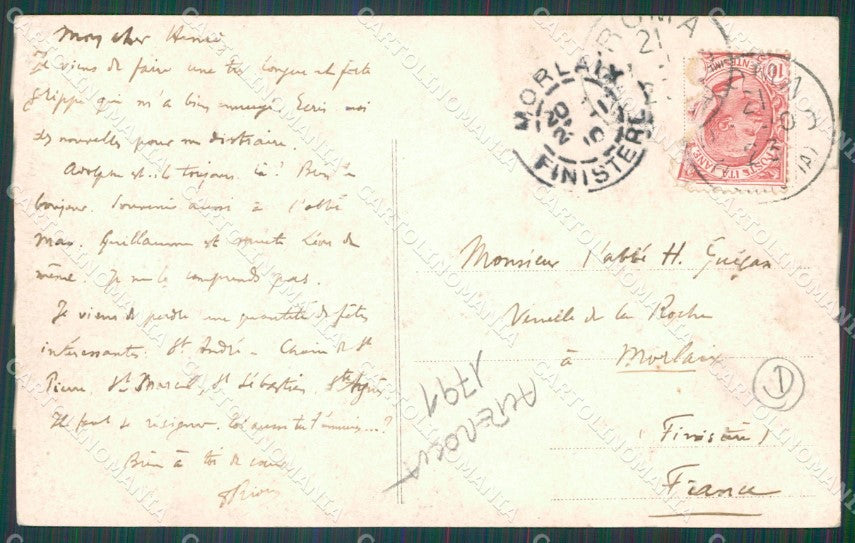 Mon cher Henri
Je viens de faire une très longue et forte
grippe qui m'a bien ennuyé. Ecris moi
des nouvelles pour me distraire.
Adolphe est-il toujours là? Bien
bonjour. Souvenir aussi à l'abbé
Guillaume et Léon de
même. Je ne le comprends pas.
Je viens de perdre une quantité de fêtes
intéressantes. St André - Chaire de St
Pierre, St Marcel, St Sébastien, Ste Agnès
Il faut se résigner.
Bien à toi de coeur
Monsieur l'abbé H. Guégan
Venelle de la Roche
à Morlaix
(Finistère)
France
MORLAIX
FINISTERE
ROMA
21
POSTE ITALIANE
10
CENTESIMI
1791
D
CARTOLINOMANIA